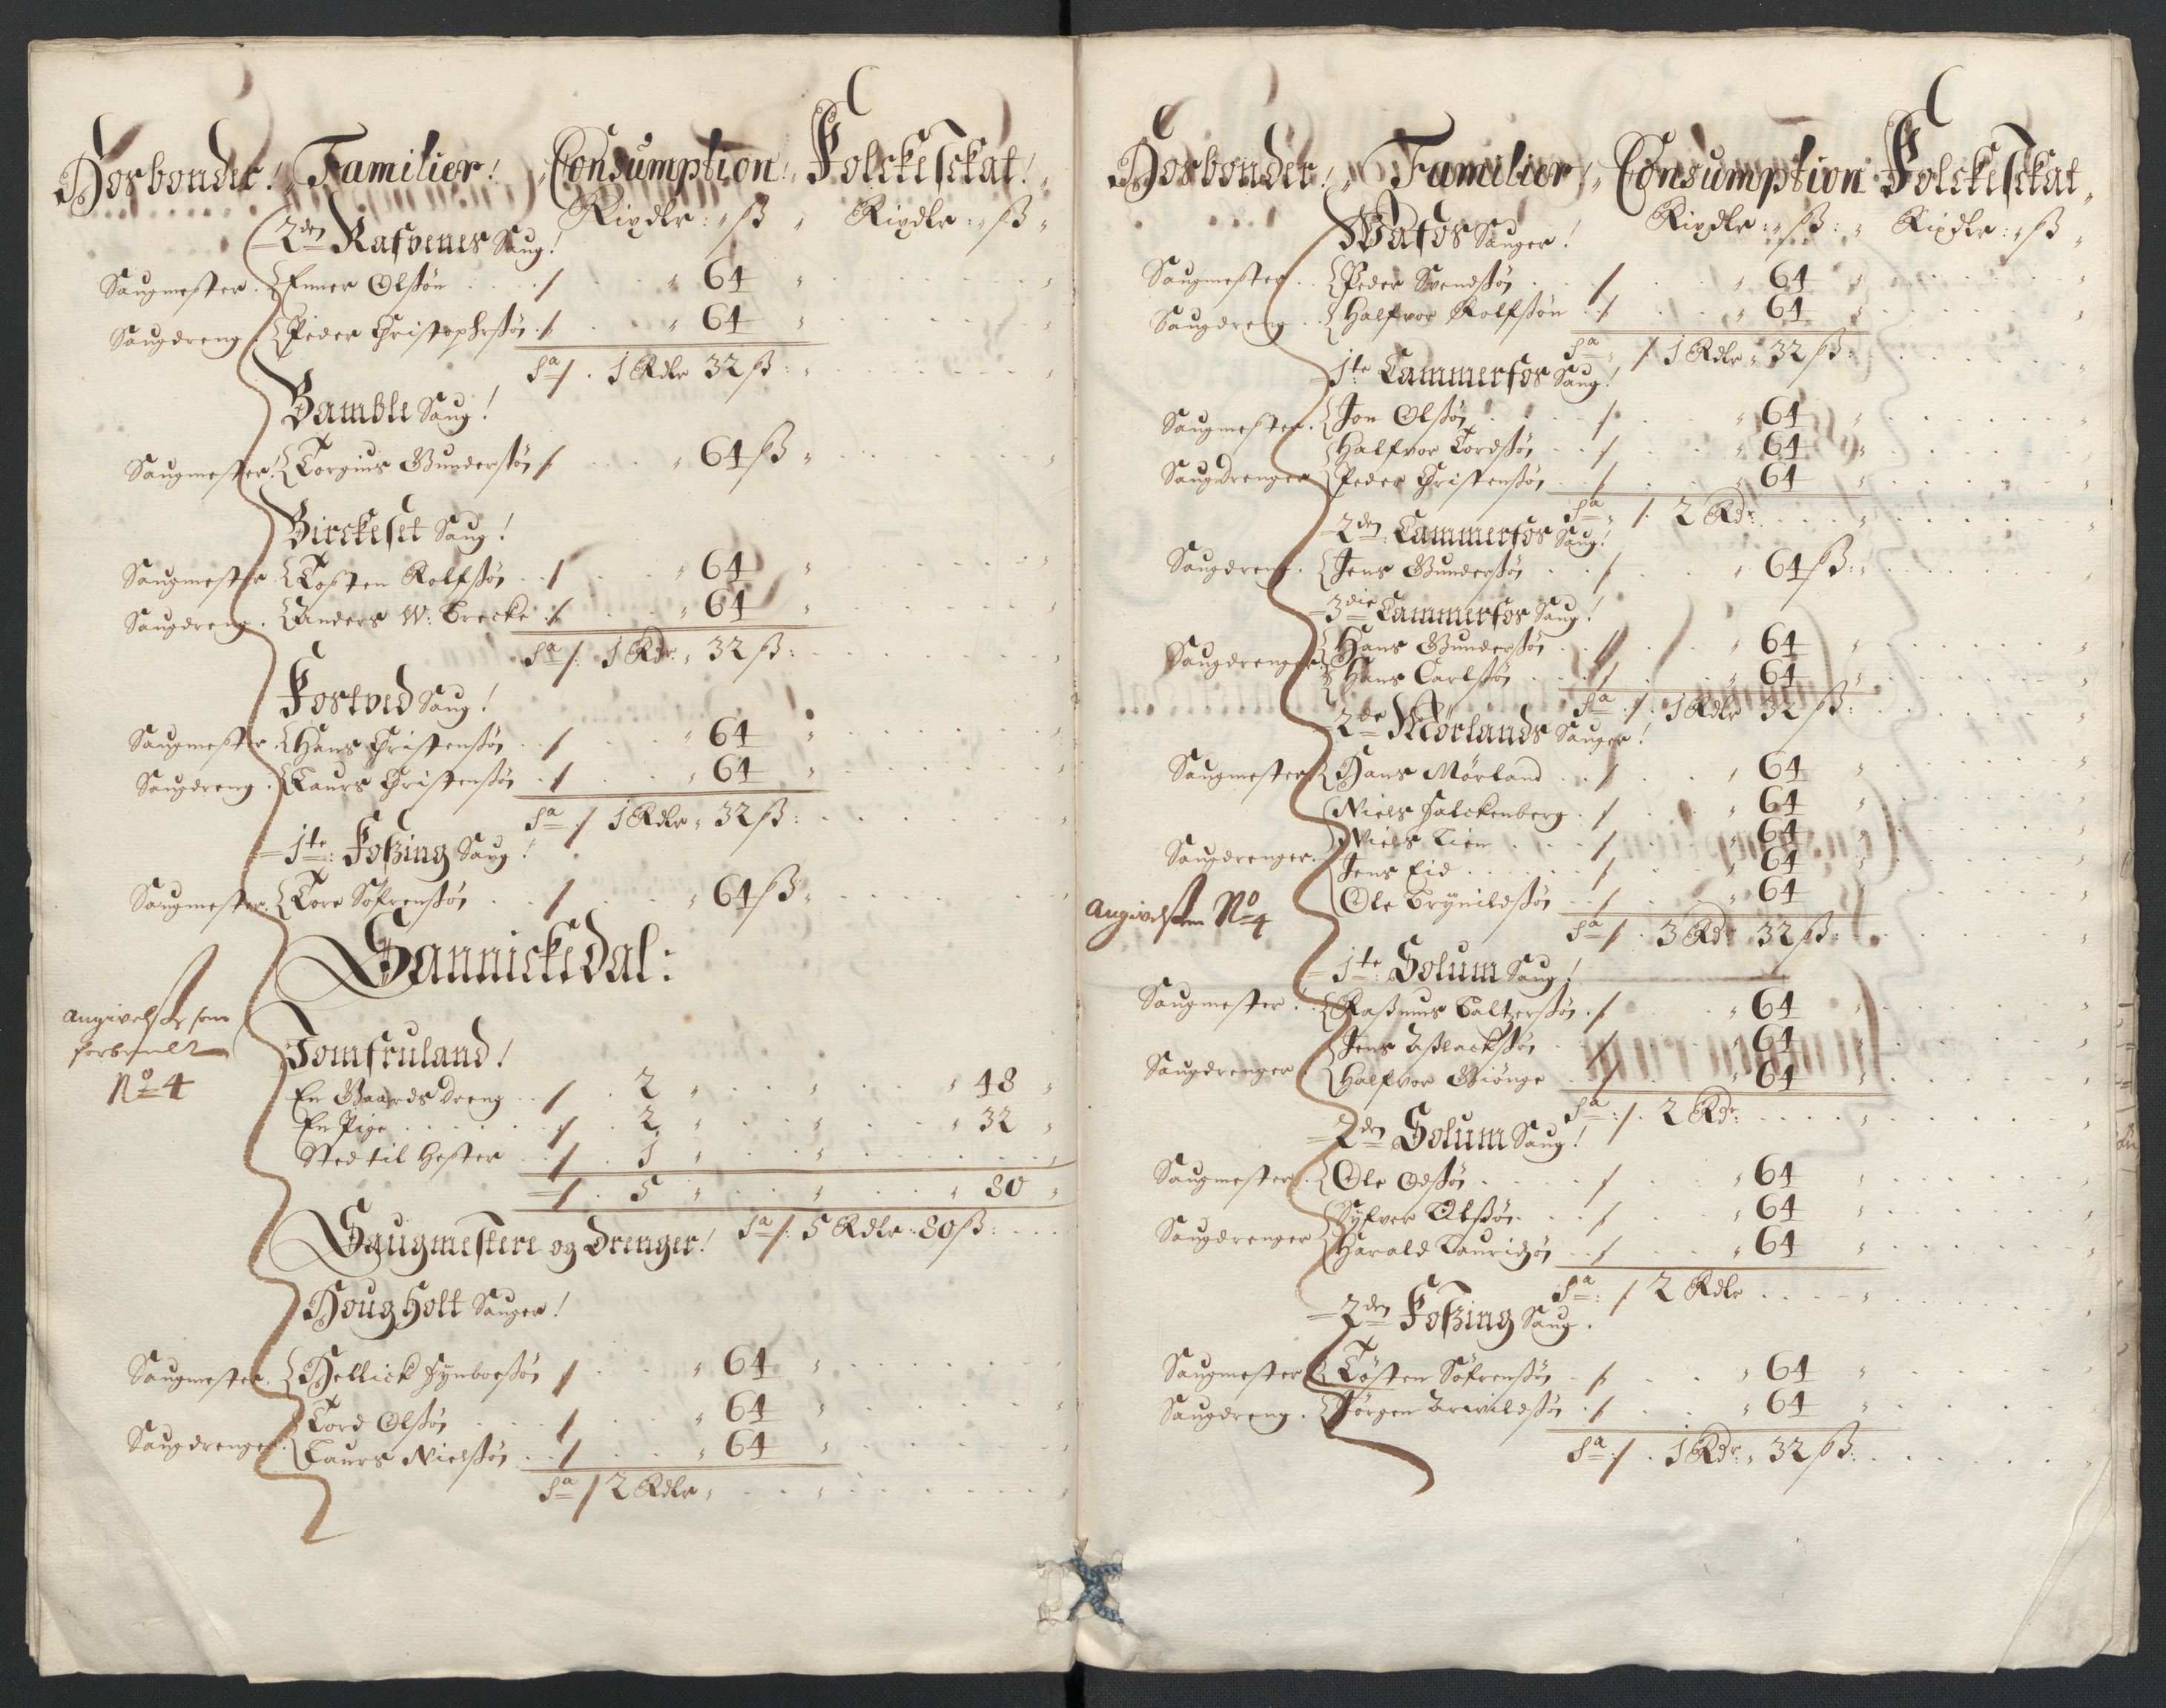 Hosbonder! Familier! Consumption! Folckeskat!
Rixdlr: ß Rixdlr: ß
2den Rafvenes Saug!
Saugmester. Enner Olßøn ./. 64
Saugdreng. Peder Christophrßøn ./. 64
Sa ./. 1 Rdlr 32 ß:
Bamble Saug!
Saugmester! Torgius Gunderßøn ./. 64 ß
Birckeset Saug!
Saugmester Tosten Rolfßøn ./. 64
Saugdreng. Anders W: Trecke ./. 64
Sa ./. 1 Rdr. 32 ß:
Fostved Saug!
Saugmester. Hans Christenßøn ./. 64
Saugdreng. Laurs Christenßøn ./. 64
Sa ./. 1 Rdlr 32 ß:
1te: Foßing Saug!
Saugmester. Tore Søfrenßøn ./. 64 ß
Sannickedal:
Angivelße som
forbemelt
No 4
Jomfruland!
En Gaards Dreng ./. 2 48
En Pige ./. 2 32
Sted til Hester ./. 1
./. 5 80
Saugmestere og Drenger! Sa ./. 5 Rdlr: 80 ß:
Houg Holt Sauger!
Saugmester. Hellick Synboeßøn ./. 64
Tord Olßøn ./. 64
Saugdrenger. Laurs Nielßøn ./. 64
Sa ./. 2 Rdlr
Hosbonder! Familier, Consumption Folckeskat
Rixdlr: ß: Rixdlr: ß
Wafos Sauger!
Saugmester. Peder Svendßøn ./. 64
Saugdreng. Halfvor Rolfßøn ./. 64
Sa ./. 1 Rdlr 32 ß:
1te: Tammerfos Saug!
Saugmester. Jon Olßøn ./. 64
Halfvor Tordßøn ./. 64
Saugdrenger Peder Christenßøn ./. 64
Sa ./. 2 Rdr:
2den: Cammerfos Saug!
Saugdreng. Jens Gunderßøn ./. 64 ß:
3die Cammerfos Saug!
Saugdrenger Hans Gunderßøn ./. 64
Hans Carlßøn ./. 64
Sa ./. 1 Rdlr 32 ß:
2de Mørlands Sauger!
Saugmester Hans Mørland ./. 64
Niels Falckenberg ./. 64
Niels Lien ./. 64
Saugdrenger. Jens Eid ./. 64
Ole Brynildßøn ./. 64
Angivelßen No 4
Sa ./. 3 Rdr 32 ß:
1te: Solum Saug!
Saugmester. Raßmus Baltzerßøn ./. 64
Jens Aßlackßøn ./. 64
Saugdrenger. Halfvor Giønge ./. 64
Sa ./. 2 Rdr:
2den Solum Saug!
Saugmester. Ole Odßøn ./. 64
Syfver Olßøn ./. 64
Saugdrenger Harald Lauridzøn ./. 64
Sa ./. 2 Rdlr
2den Foßing Saug.
Saugmester Tøsten Søfrenßøn ./. 64
Saugdreng. Jørgen Arvildßøn ./. 64
Sa ./. 1 Rdr: 32 ß: